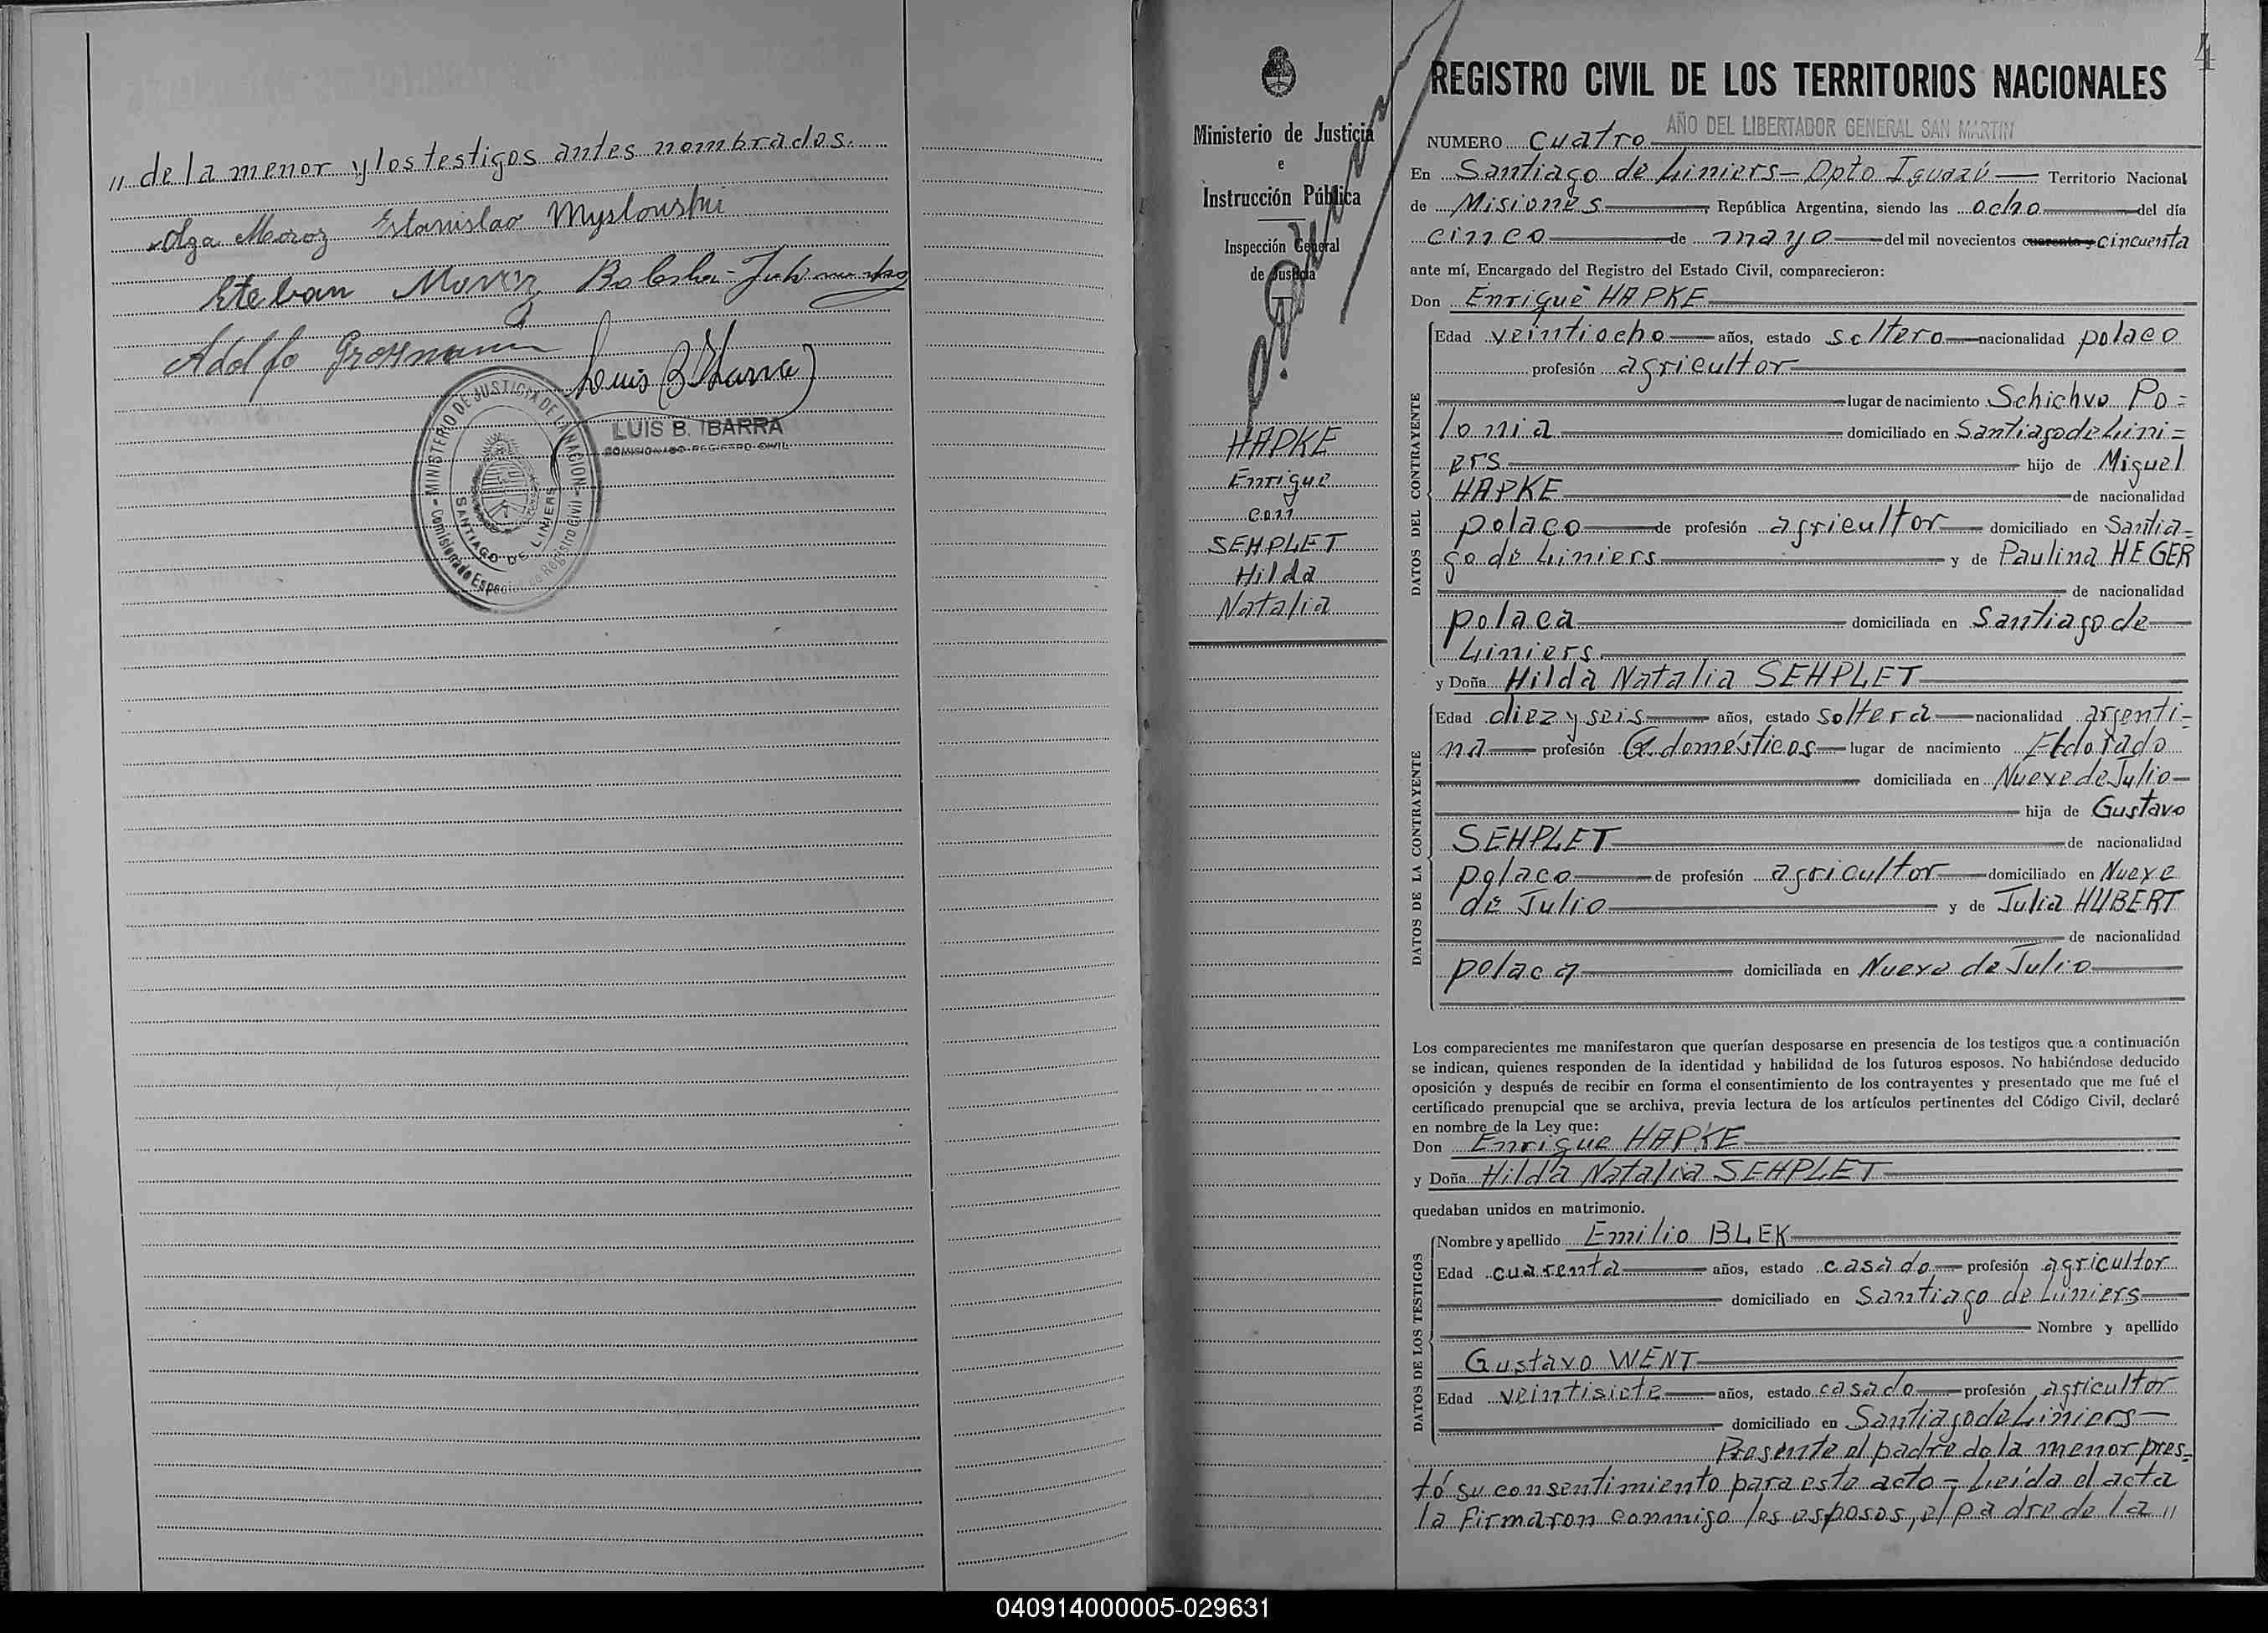 " de la menor y los testigos antes nombrados.
Olga Moroz Estanislao Myslouski
Esteban Moroz
Adolfo Grossmann
Luis B Ibarra
LUIS B. IBARRA
COMISIONADO REGISTRO CIVIL
MINISTERIO DE JUSTICIA DE LA NACION
Comisionado Especial de Registro Civil
SANTIAGO DE LINIERS
Ministerio de Justicia
e
Instrucción Pública
Inspección General
de Justicia
HAPKE
Enrique
con
SEHPLET
Hilda
Natalia
4
REGISTRO CIVIL DE LOS TERRITORIOS NACIONALES
AÑO DEL LIBERTADOR GENERAL SAN MARTIN
NUMERO cuatro
En Santiago de Liniers - Dpto Iguazú Territorio Nacional
de Misiones, República Argentina, siendo las ocho del día
cinco de mayo del mil novecientos cuarenta y cincuenta
ante mí, Encargado del Registro del Estado Civil, comparecieron:
Don Enrique HAPKE
DATOS DEL CONTRAYENTE
Edad veintiocho años, estado soltero nacionalidad polaco
profesión agricultor
lugar de nacimiento Schichvo Po=
lonia domiciliado en Santiago de Lini=
ers hijo de Miguel
HAPKE de nacionalidad
polaco de profesión agricultor domiciliado en Santia=
go de Liniers y de Paulina HEGER
de nacionalidad
polaca domiciliada en Santiago de
Liniers
y Doña Hilda Natalia SEHPLET
DATOS DE LA CONTRAYENTE
Edad diez y seis años, estado soltera nacionalidad argenti=
na profesión Q. domésticos lugar de nacimiento Eldorado
domiciliada en Nueve de Julio
hija de Gustavo
SEHPLET de nacionalidad
polaco de profesión agricultor domiciliado en Nueve
de Julio y de Julia HUBERT
de nacionalidad
polaca domiciliada en Nueve de Julio
Los comparecientes me manifestaron que querían desposarse en presencia de los testigos que a continuación
se indican, quienes responden de la identidad y habilidad de los futuros esposos. No habiéndose deducido
oposición y después de recibir en forma el consentimiento de los contrayentes y presentado que me fué el
certificado prenupcial que se archiva, previa lectura de los artículos pertinentes del Código Civil, declaré
en nombre de la Ley que:
Don Enrique HAPKE
y Doña Hilda Natalia SEHPLET
quedaban unidos en matrimonio.
DATOS DE LOS TESTIGOS
Nombre y apellido Emilio BLEK
Edad cuarenta años, estado casado profesión agricultor
domiciliado en Santiago de Liniers
Nombre y apellido
Gustavo WENT
Edad veintisiete años, estado casado profesión agricultor
domiciliado en Santiago de Liniers
Presente el padre de la menor pres=
tó su consentimiento para este acto - Leída el acta
la firmaron conmigo los esposos, el padre de la "
040914000005-029631